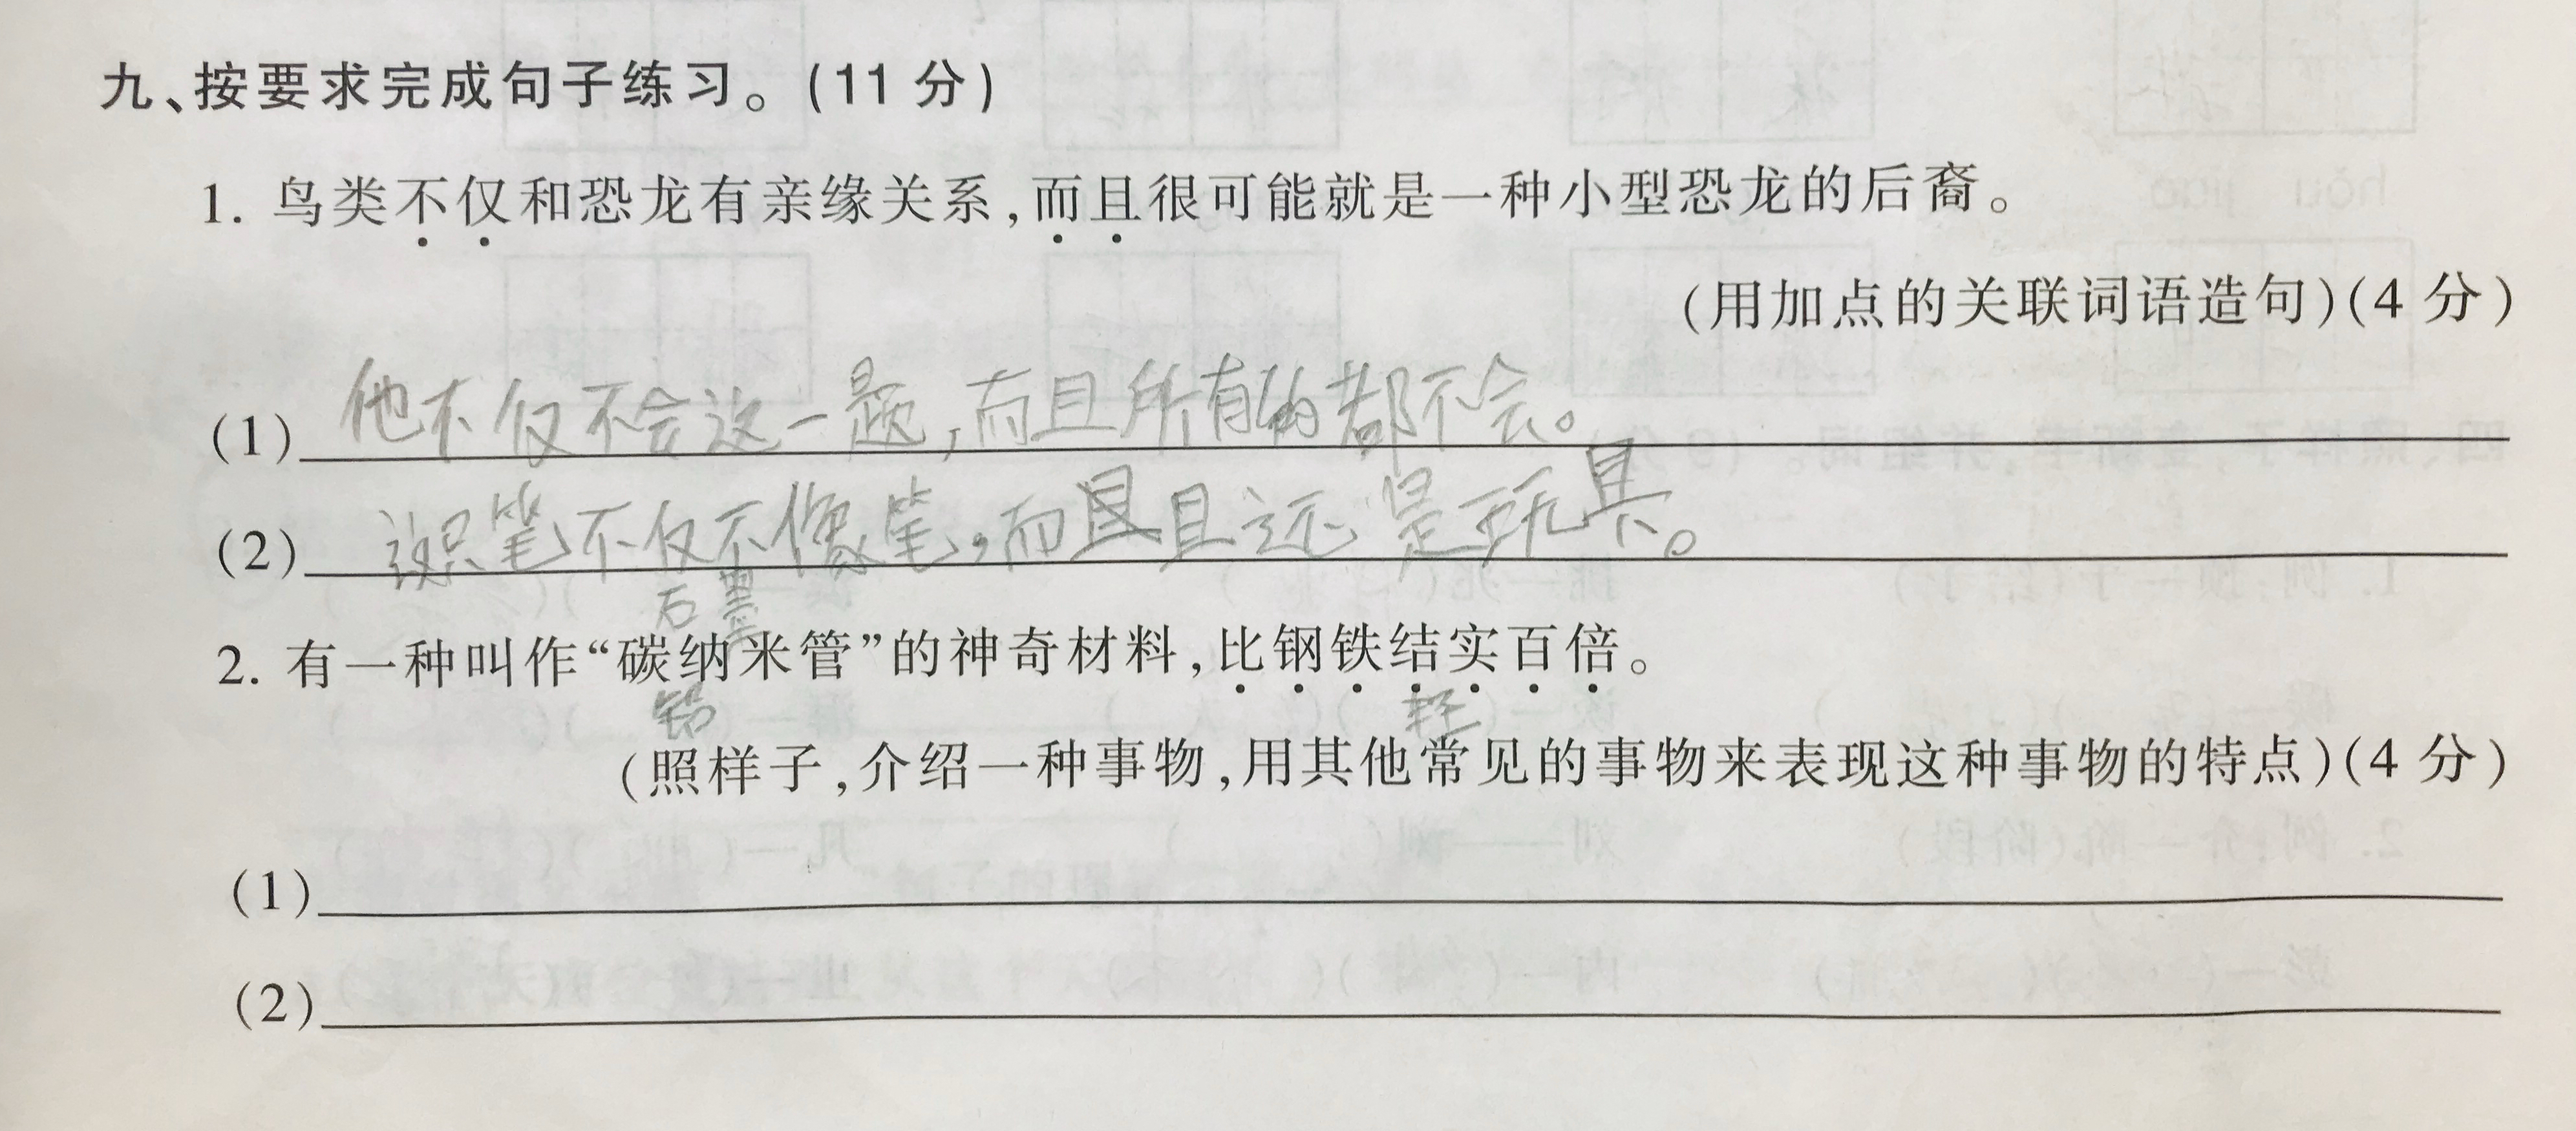 九、按要求完成句子练习。(11 分)
1. 鸟类不仅和恐龙有亲缘关系,而且很可能就是一种小型恐龙的后裔。
(用加点的关联词语造句)(4 分)
(1) 他不仅不会这一题,而且所有的都不会。
(2) 这只笔不仅不像笔,而且还是玩具。
石墨
2. 有一种叫作“碳纳米管”的神奇材料,比钢铁结实百倍。
铅 轻
(照样子,介绍一种事物,用其他常见的事物来表现这种事物的特点)(4 分)
(1)
(2)